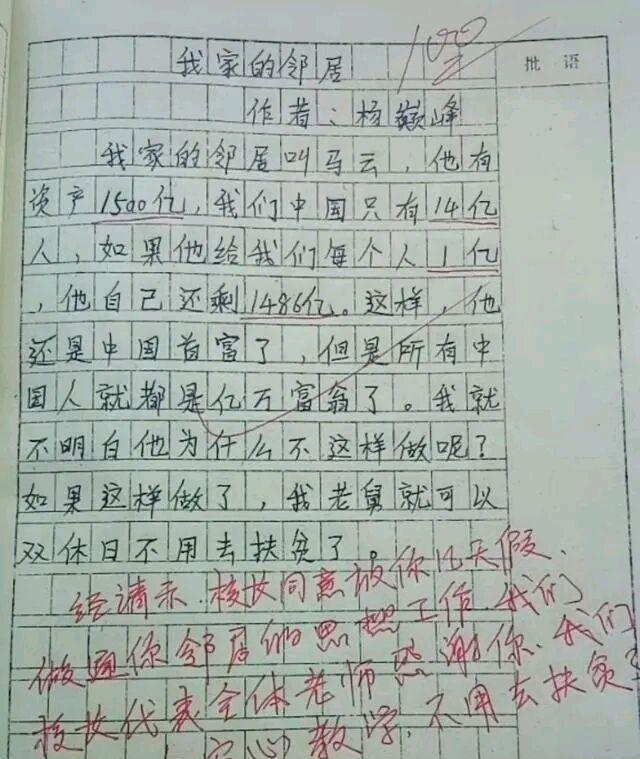 我家的邻居
100
批语
作者：杨巅峰
我家的邻居叫马云，他有
资产1500亿，我们中国只有14亿
人，如果他给我们每个人1亿
，他自己还剩1486亿。这样，他
还是中国首富了，但是所有中
国人就都是亿万富翁了。我就
不明白他为什么不这样做呢？
如果这样做了，我老舅就可以
双休日不用去扶贫了。
经请示、校女同意放你几天假、
做通你邻居的思想工作、我们
校女代表全体老师感谢你、我们
安心教学，不用去扶贫了